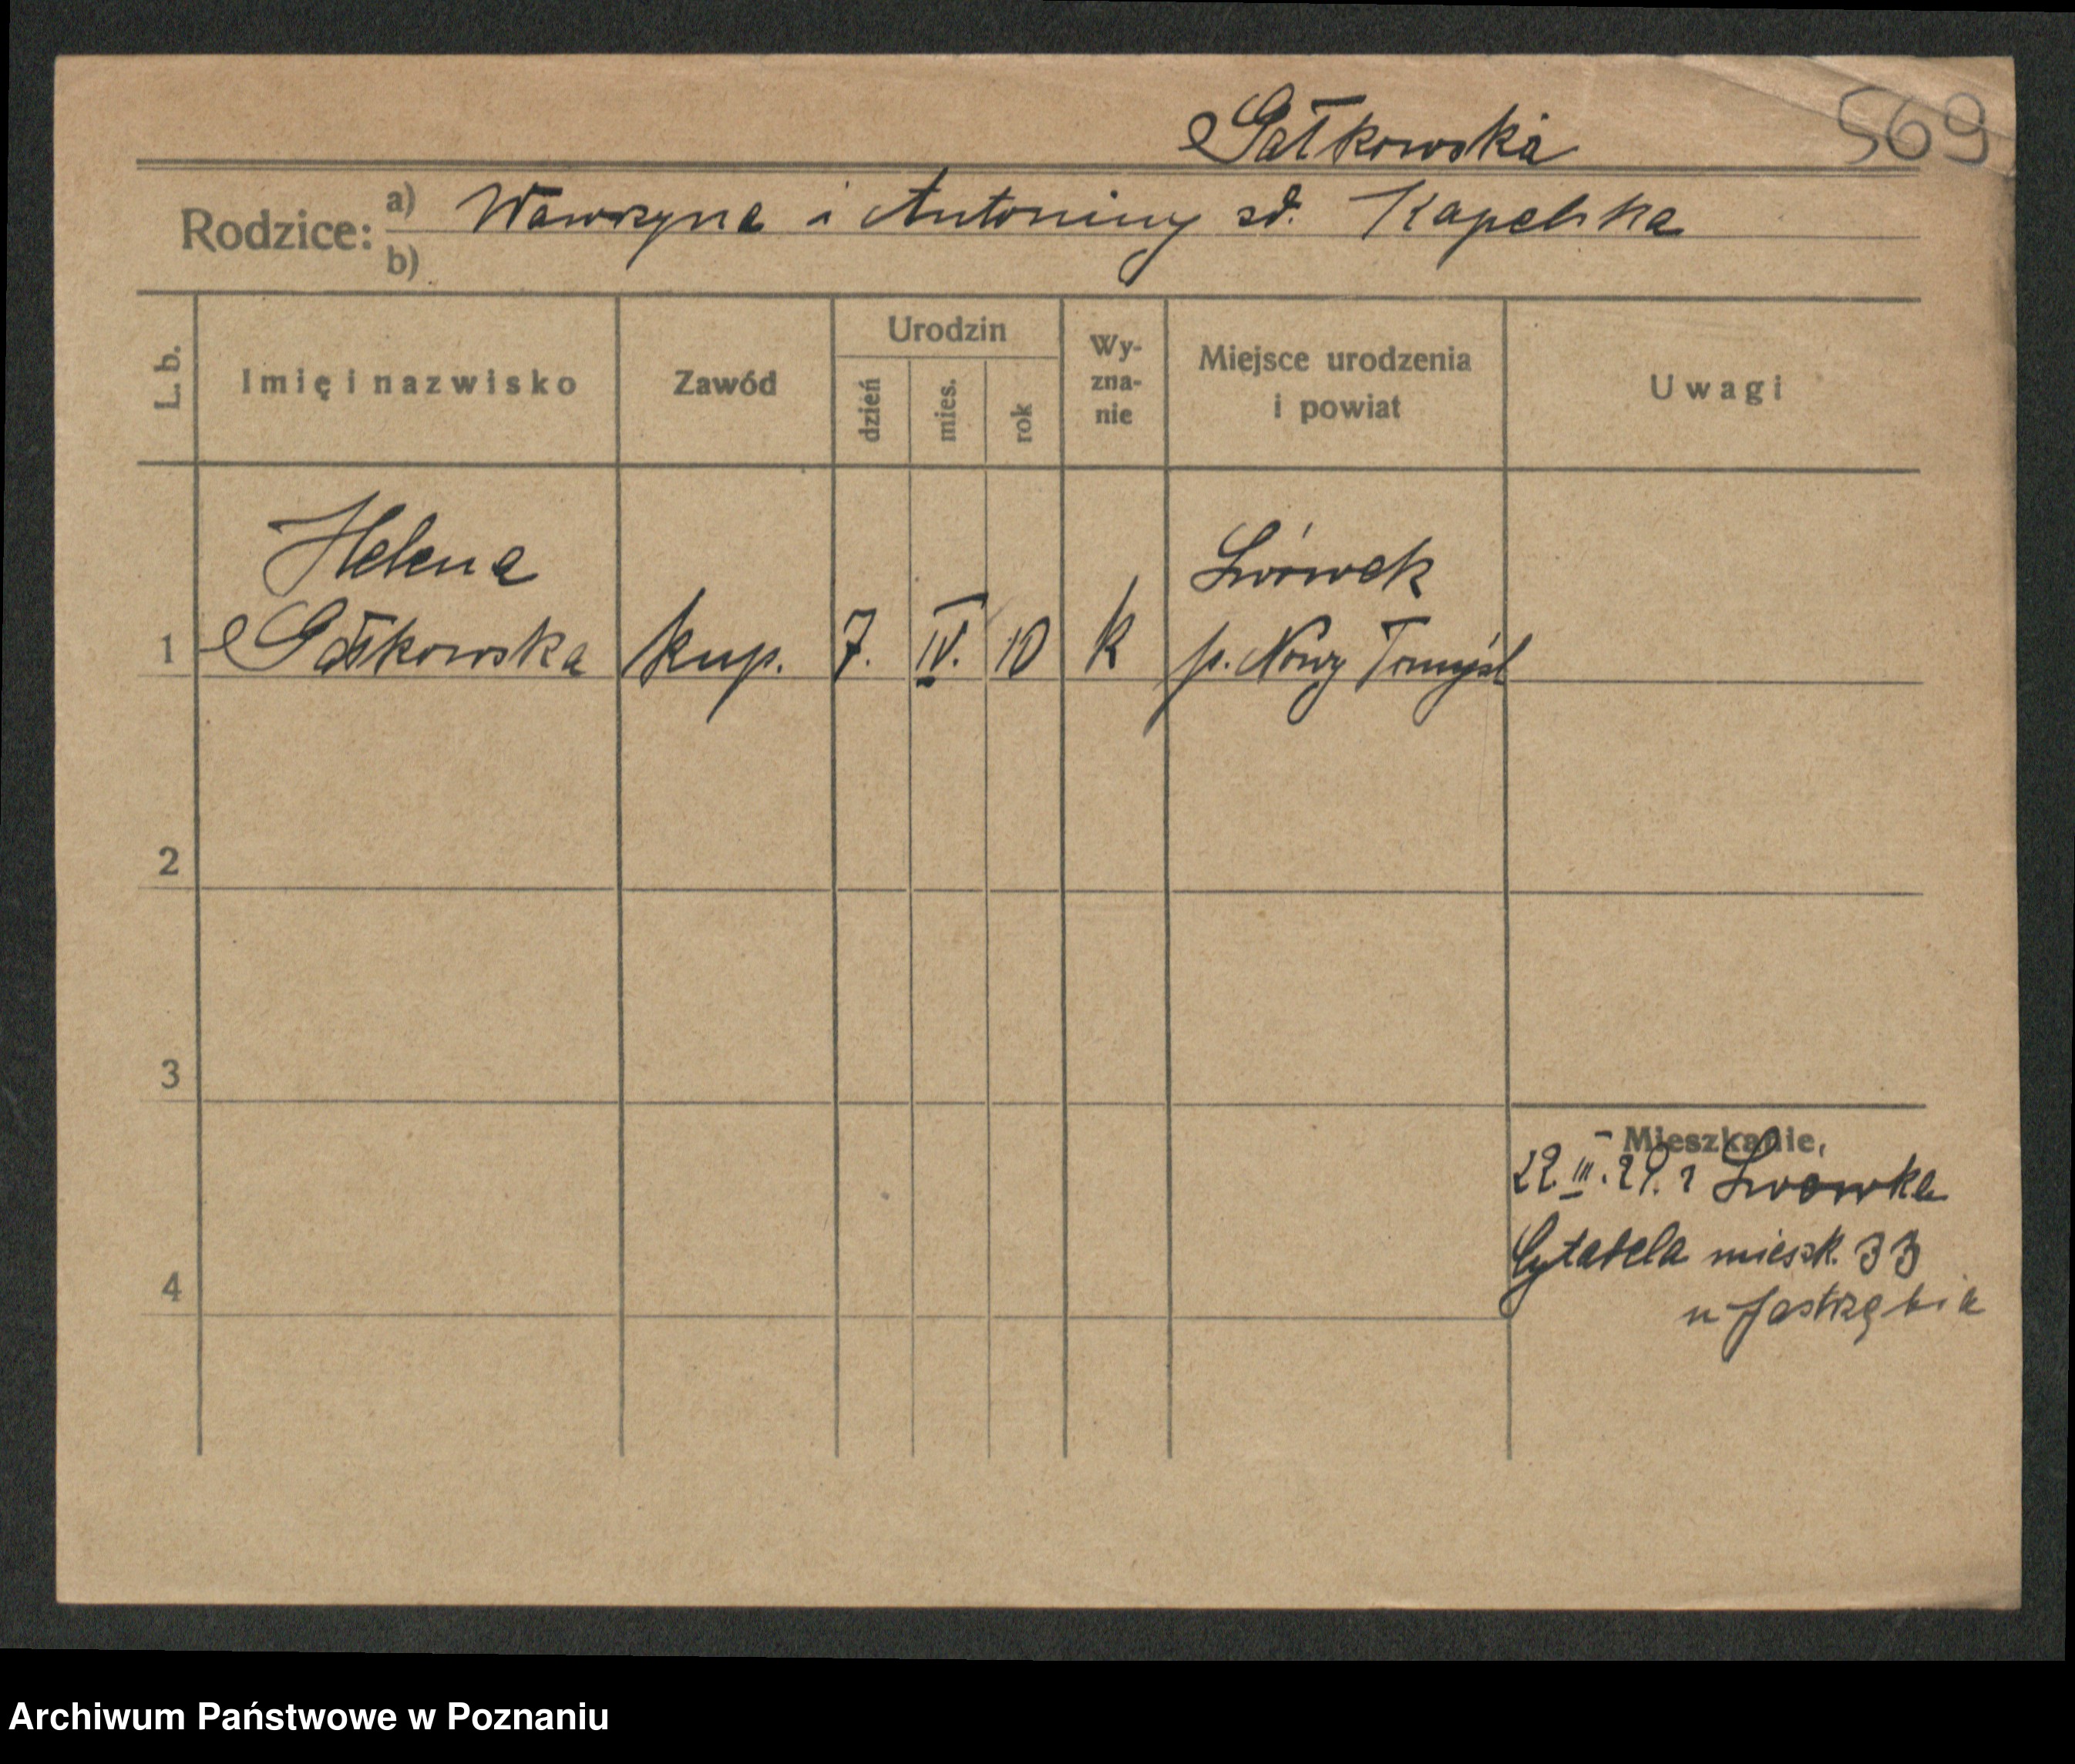 Gałkowska 569
Rodzice: a) Wawrzyna i Antoniny zd. Kapelska
b)
L. b. Imię i nazwisko Zawód Urodzin dzień mies. rok Wy-zna-nie Miejsce urodzenia i powiat Uwagi
Helena Lwówek
1 Gałkowska kup. 7. IV. 10 k p. Nowy Tomyśl
2
3
Mieszkanie,
22 III. 29. z Lwówka
Cytadela mieszk. 33
4
u Jastrzębia
Archiwum Państwowe w Poznaniu